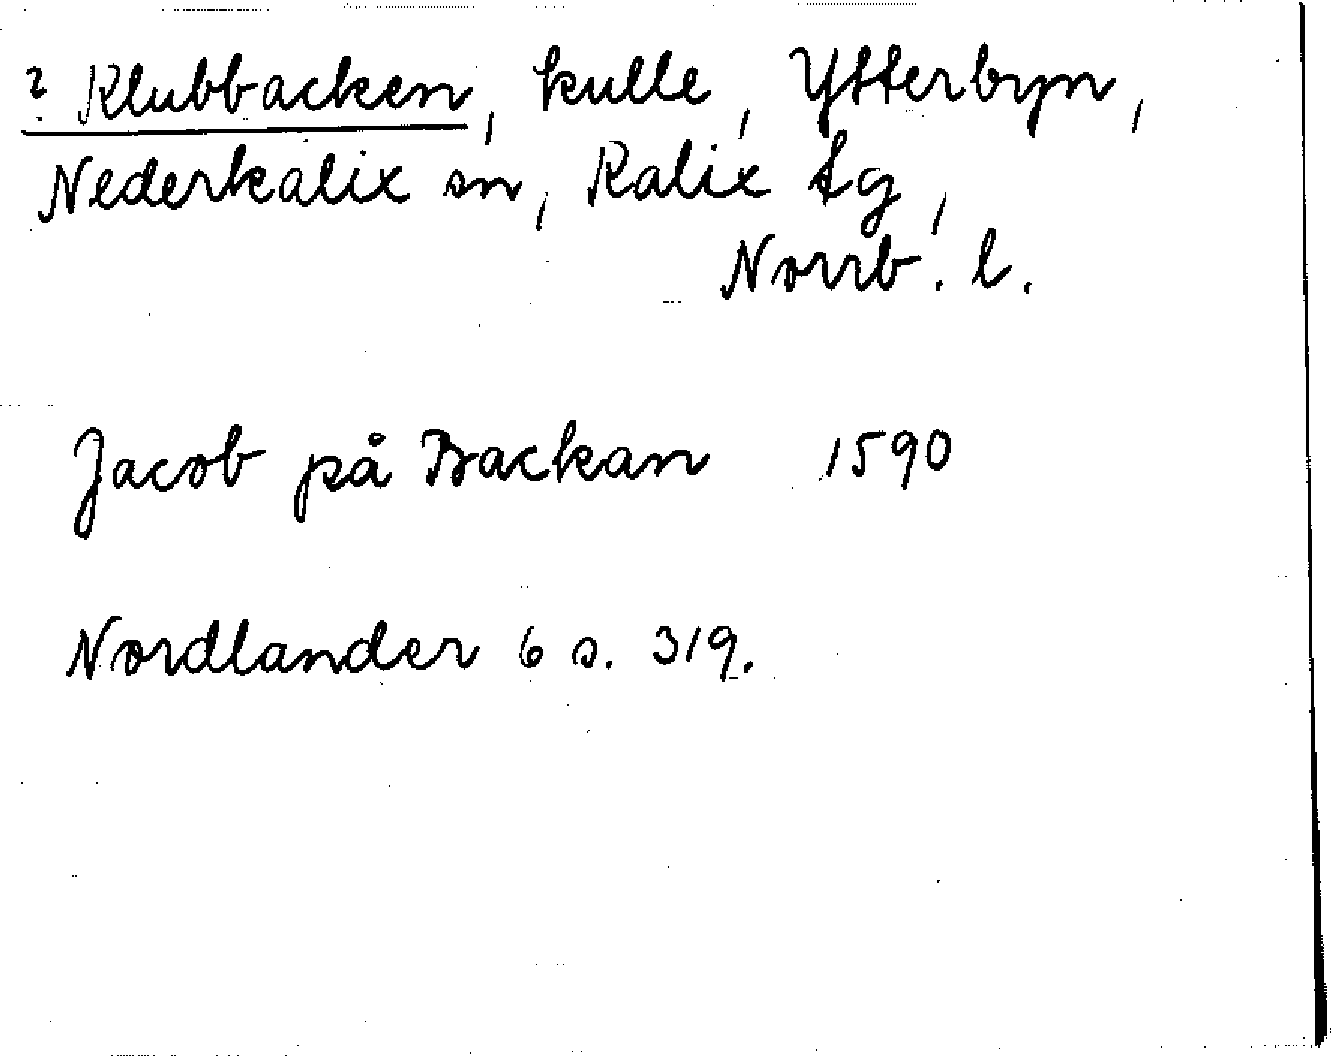 ? Klubbacken, kulle, Ytterbyn,
Nederkalix sn, Kalix tg,
Norrb. l.
Jacob på Backan 1590
Nordlander 6 s. 319.